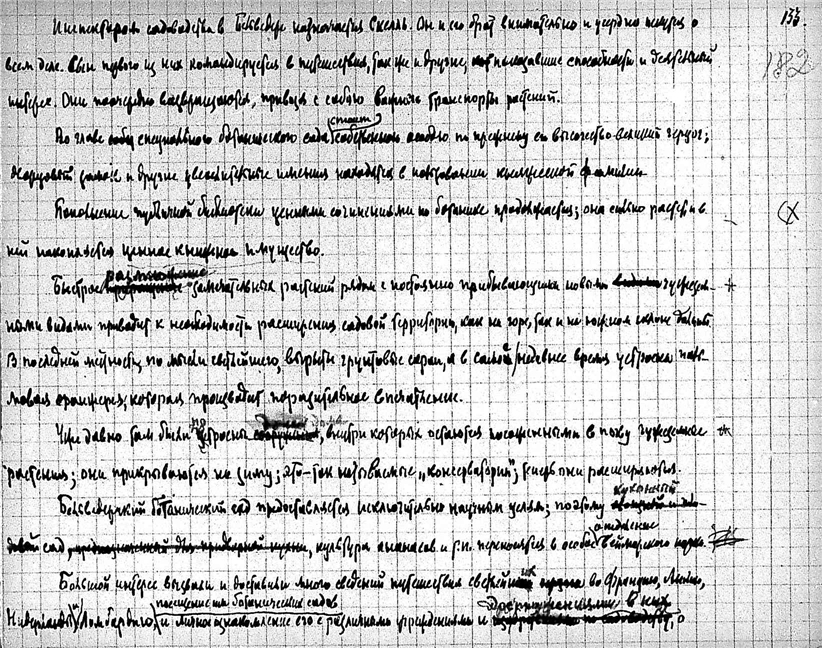 133
182
Инспектором садоводства в Бельведере назначается Скелль. Он и его брат внимательно и усердно пекутся о
всем деле. Сын первого из них командируется в путешествия, так же и другие, показавшие способности и действенный
интерес. Они поочередно возвращаются, привозя с собою важные транспорты растений.
Во главе специального ботанического сада стоит по прежнему его высочество великий герцог;
дворцовый и другие имения находятся в пользовании княжеской фамилии.
Пополнение публичной библиотеки ценными сочинениями по ботанике продолжается; она сильно растет и в
ней накопляется ценное книжное имущество.
Быстрое размножение замечательных растений рядом с постоянно прибывающими новыми чужезем-
ными видами приводит к необходимости расширения садовой территории, как на горе, так и на южном склоне
В последней местности, по мысли светлейшего, вырыты грунтовые сараи, а в самое недавнее время устроена паль-
мовая оранжерея, которая производит поразительное впечатление.
Уже давно там были построены дома, внутри которых остаются посаженными в почву чужеземные
растения; они прикрываются на зиму; это — так называемые „консерватории"; теперь они расширяются.
Бельведерский ботанический сад предоставляется исключительно научным целям; поэтому кухонный
сад, культура ананасов и т.п. переносится в особое отделение веймарского парка.
Большой интерес вызвали и доставили много сведений путешествия светлейшего во Францию, Англию,
Нидерланды и Ломбардию, посещение им ботанических садов и личное ознакомление его с различными учреждениями и в них, о